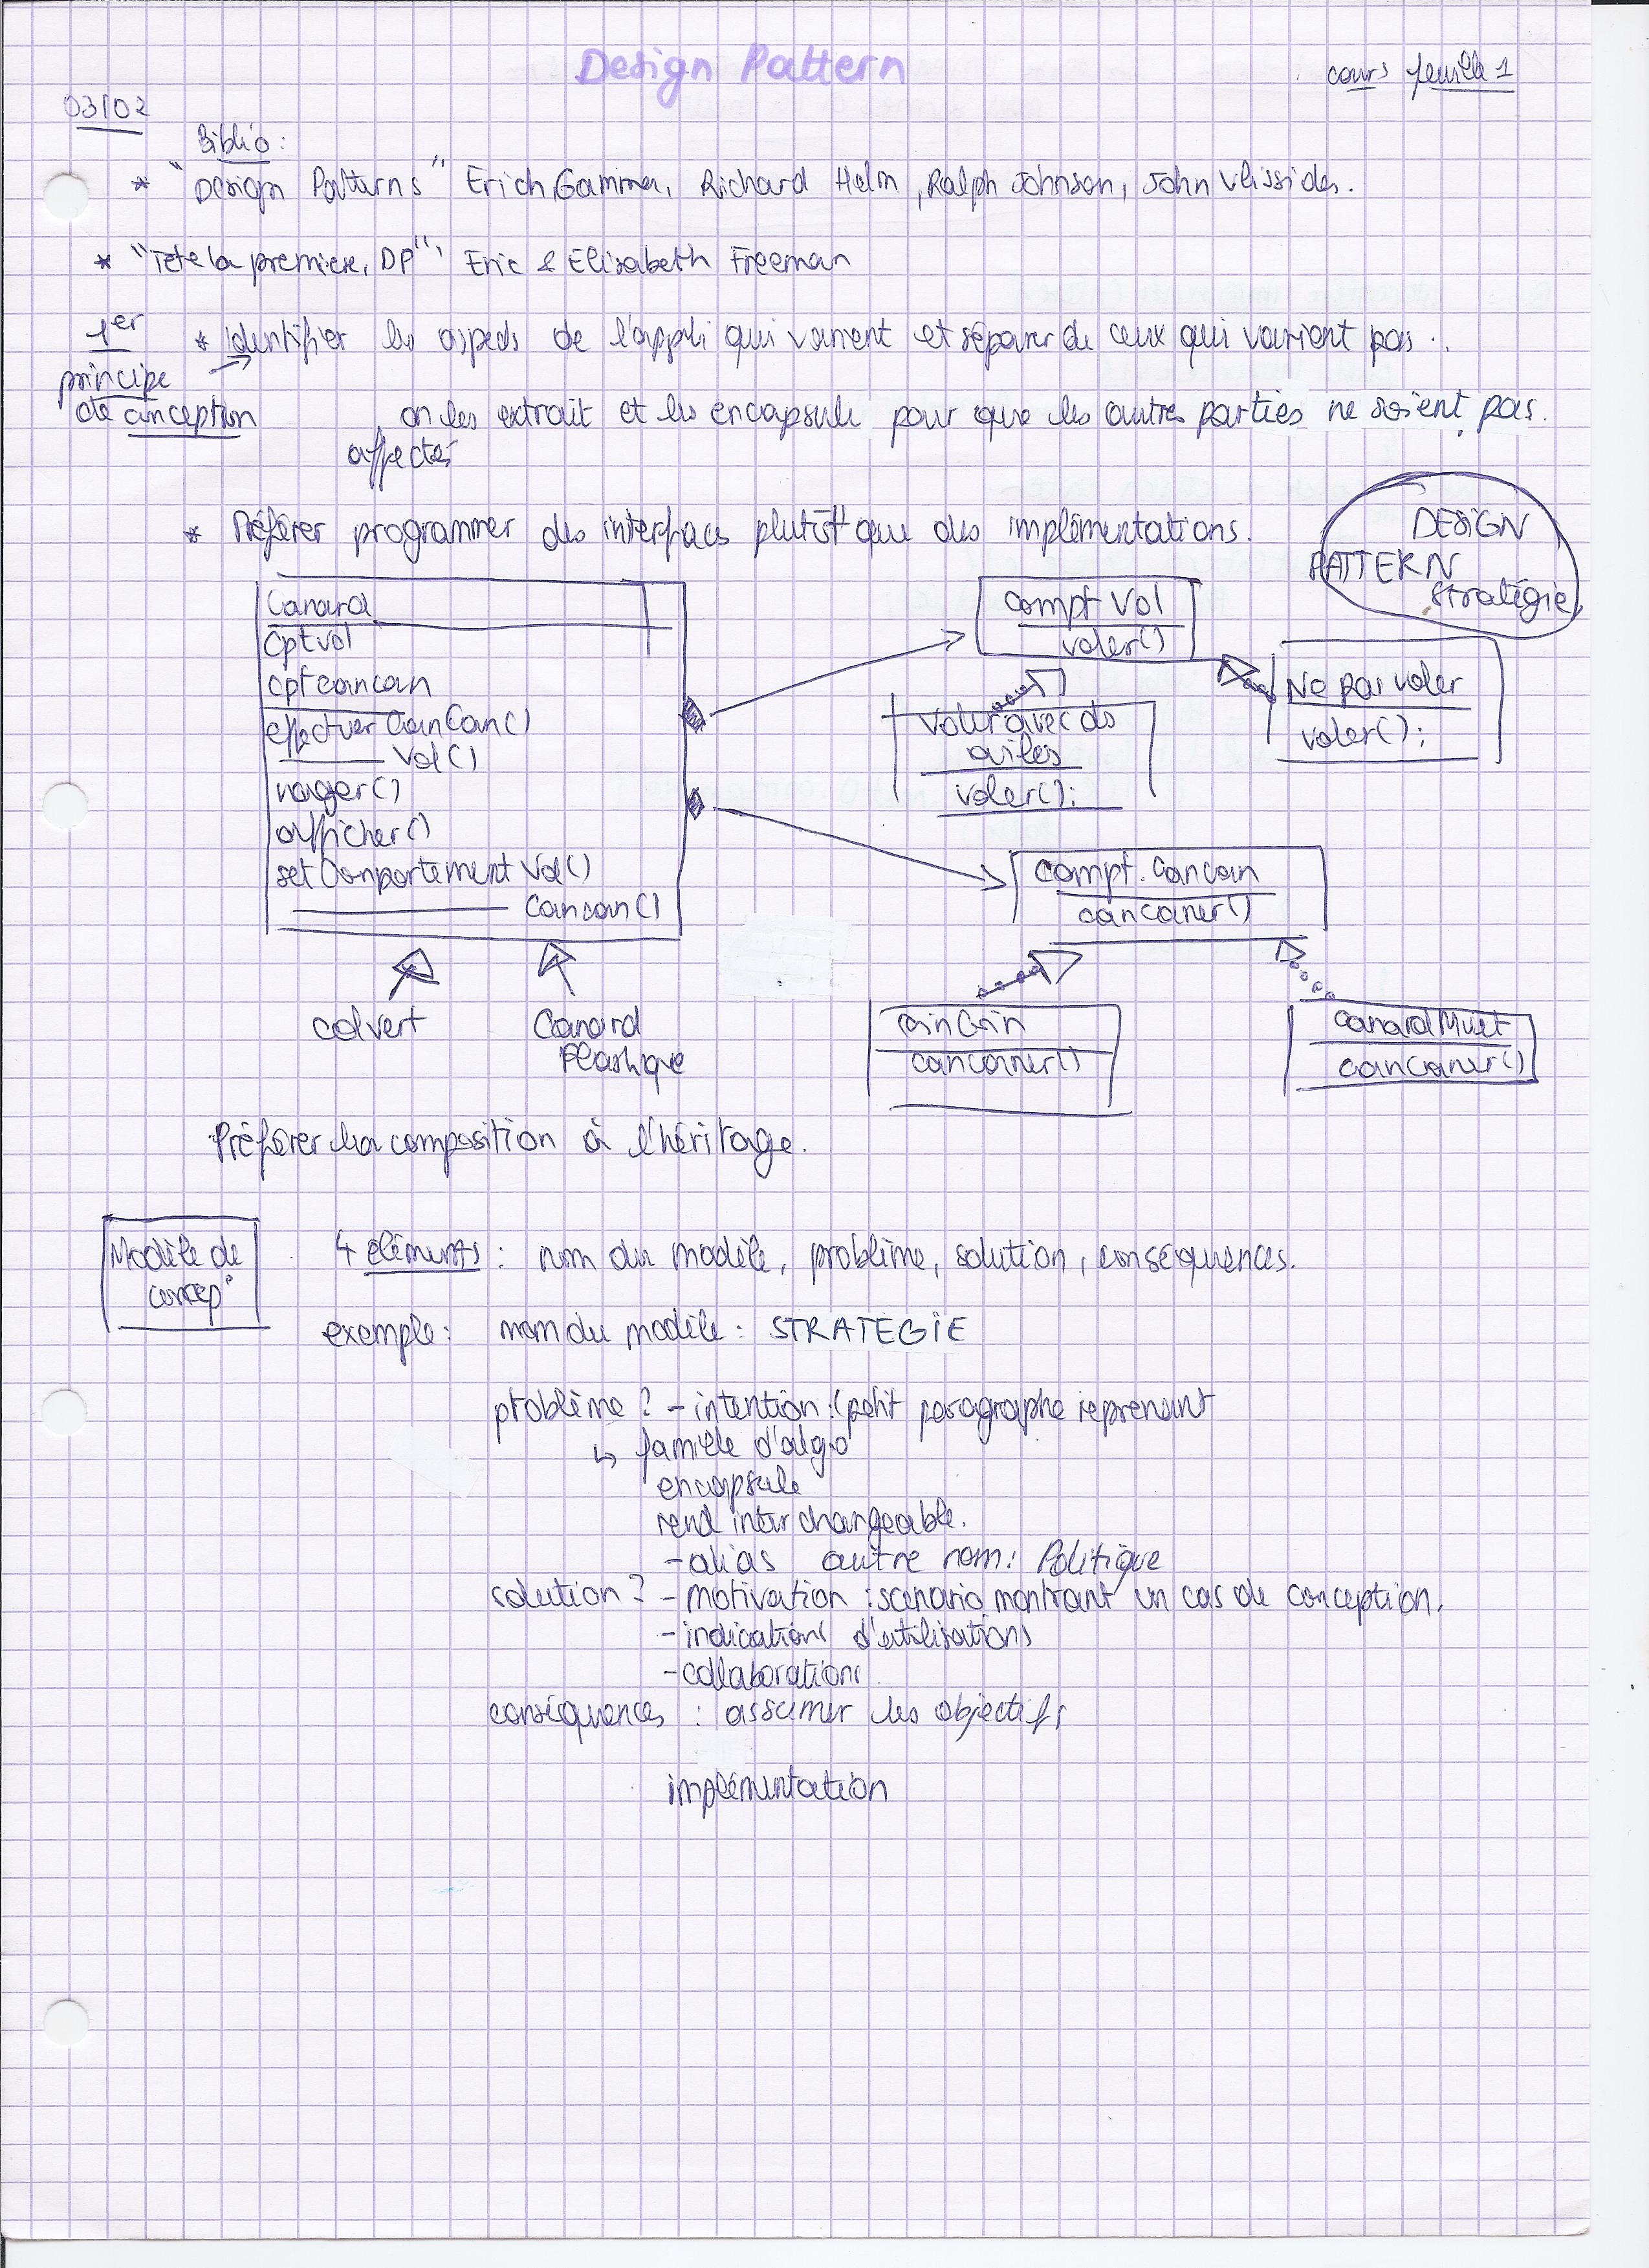 Design Pattern
cours feuille 1
03/02
Biblio :
* "Design Patterns" Erich Gamma, Richard Helm, Ralph Johnson, John Vlissides.
* "Tête la première, DP", Eric & Elisabeth Freeman
1er principe de conception
* Identifier les aspects de l'appli qui varient et séparer de ceux qui varient pas.
→ on les extrait et les encapsule pour que les autres parties ne soient pas.
affectés
* Préférer programmer des interfaces plutôt que des implémentations.
DESIGN
PATTERN
Stratégie
Canard
Cptvol
cptcancan
effectuer CanCan()
——— Vol()
nager()
afficher()
setComportement Vol()
——— Cancan()
compt Vol
voler()
Voler avec des
ailes
voler();
Ne pas voler
voler();
compt. Cancan
cancaner()
colvert
Canard
Plastique
CoinCoin
cancanner()
canardMuet
cancaner()
Préférer la composition à l'héritage.
Modèle de
concep°
4 éléments : nom du modèle, problème, solution, conséquences.
exemple : nom du modèle : STRATEGIE
problème ? - intention : (petit paragraphe reprenant
↳ famille d'algo
encapsule
rend interchangeable.
- alias autre nom : Politique
solution ? - motivation : scénario montrant un cas de conception.
- indications d'utilisations
- collaborations
conséquences : assumer les objectifs
implémentation